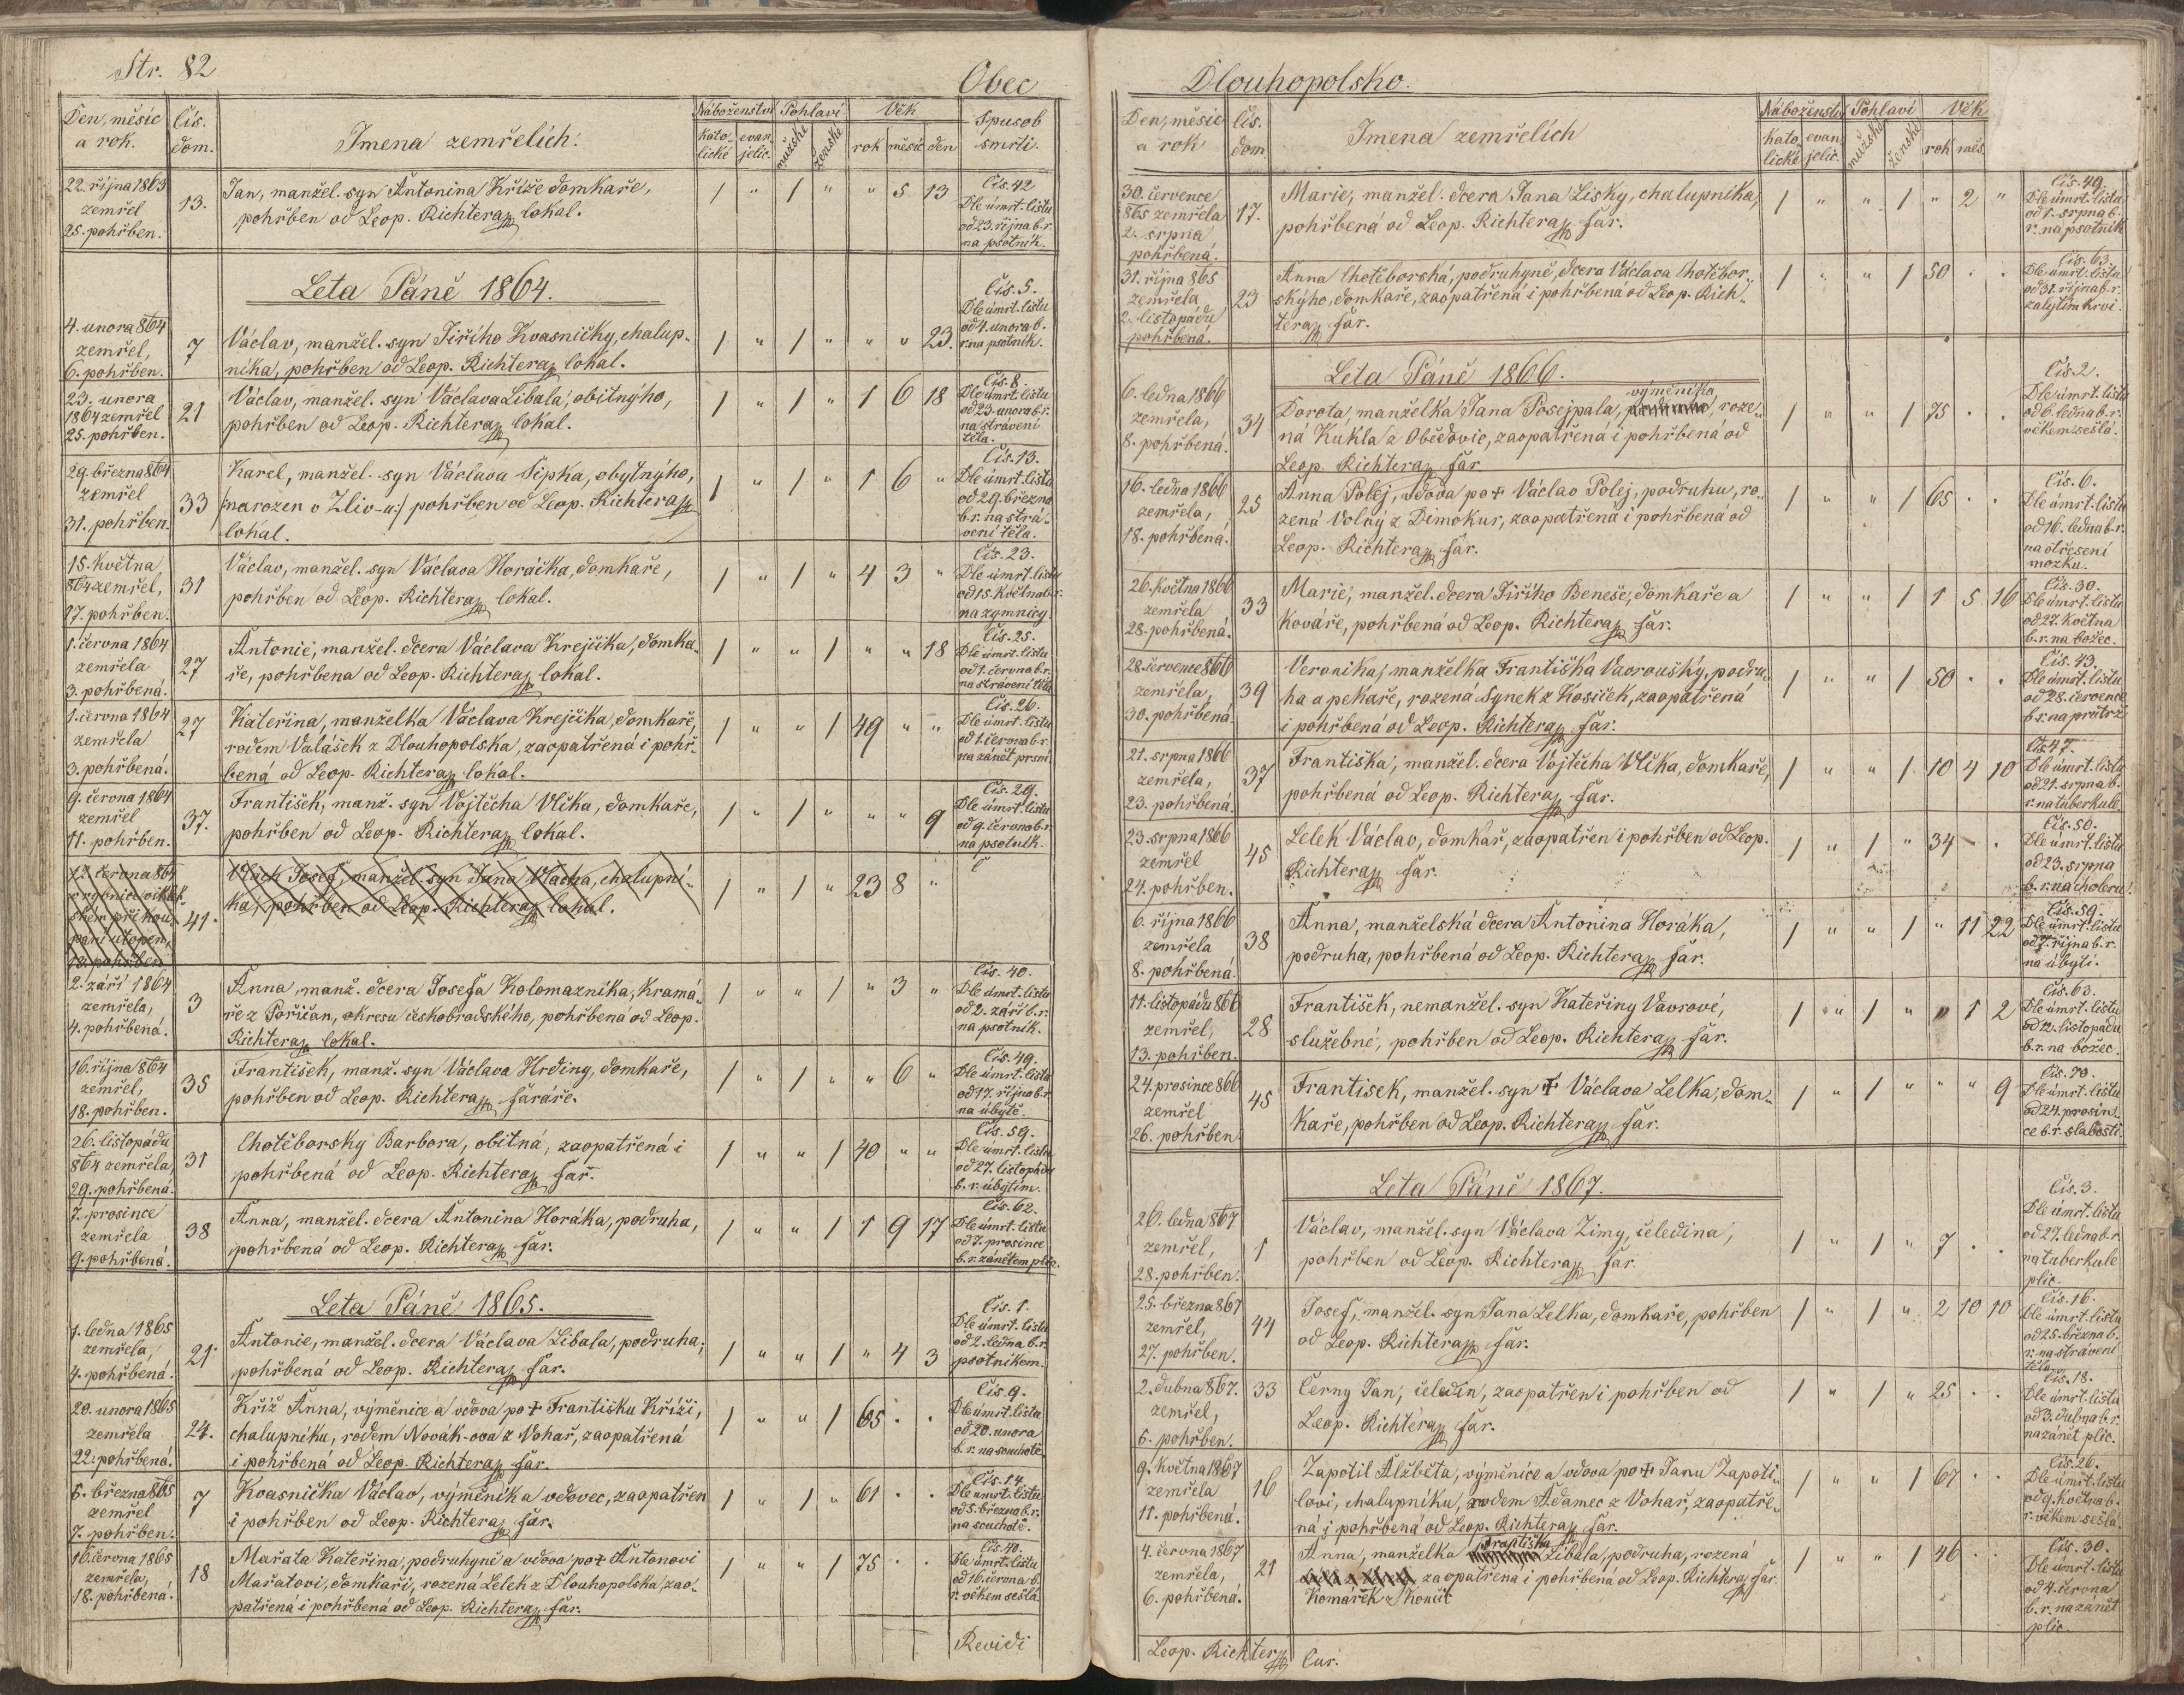 Str. 82
Obec
Den, měsíc a rok. | Čís. dom. | Jmena zemřelích: | Náboženství katolické | evanjelic. | Pohlaví mužské | ženské | Věk rok | měsíc | den | Spusob smrti.
22. října 1863 zemřel 25. pohřben. | 13. | Jan, manžel. syn Antonina Kříže domkaře,
pohřben od Leop. Richtera lokal. | 1 | " | 1 | " | " | 5 | 13 | Čís. 42 Dle úmrt. listu od 23. října b. r. na psotník.
Leta Páně 1864.
4. unora 864 zemřel, 6. pohřben. | 7 | Václav, manžel. syn Jiřího Kvasničky, chalup-
níka, pohřben od Leop. Richtera lokal. | 1 | " | 1 | " | " | " | 23. | Čís. 5. Dle úmrt. listu od 4. unora b. r. na psotník.
23. unora 1864 zemřel 25. pohřben. | 21 | Václav, manžel. syn Václava Libala, obitnýho,
pohřben od Leop. Richtera lokal. | 1 | " | 1 | " | 1 | 6 | 18 | Čís. 8. Dle úmrt. listu od 23. unora b. r. na strávení těla.
29. března 864 zemřel 31. pohřben. | 33 | Karel, manžel. syn Václava Šipka, obytnýho,
/: narozen v Zliv-u :/ pohřben od Leop. Richtera
lokal. | 1 | " | 1 | " | 1 | 6 | " | Čís. 13. Dle úmrt. listu od 29. března b. r. na strávení těla.
15. května 864 zemřel, 17. pohřben. | 31 | Václav, manžel. syn Václava Horáčka, domkaře,
pohřben od Leop. Richtera lokal. | 1 | " | 1 | " | 4 | 3 | " | Čís. 23. Dle úmrt. listu od 15. května b. r. na zymnicy.
1. června 1864 zemřela 3. pohřbená. | 27 | Antonie, manžel. dcera Václava Krejčika, domka-
ře, pohřbena od Leop. Richtera lokal. | 1 | " | " | 1 | " | " | 18 | Čís. 25. Dle úmrt. listu od 1. června b. r. na strávení těla
1. června 1864 zemřela 3. pohřbená. | 27 | Kateřina, manželka Václava Krejčika, domkaře,
rodem Valášek z Dlouhopolska, zaopatřená i pohř-
bená od Leop. Richtera lokal. | 1 | " | " | 1 | 49 | " | " | Čís. 26. Dle úmrt. listu od 1. června b. r. na zánět prsní.
9. června 1864 zemřel 11. pohřben. | 37. | František, manž. syn Vojtěcha Vlčka, domkaře,
pohřben od Leop. Richtera lokal. | 1 | " | 1 | " | " | " | 9 | Čís. 29. Dle úmrt. listu od 9. června b. r. na psotník.
12. června 864 v rybnice při koupání utopen, pohřben | 41. | Vlach Josef, manžel. syn Jana Vlacha, chalupní-
ka, pohřben od Leop. Richtera lokal. | 1 | " | 1 | " | 23 | 8 | "
2. září 1864 zemřela, 4. pohřbená. | 3 | Anna, manž. dcera Josefa Kolomazníka, kramá-
ře z Pořičan, okresu českobrodského, pohřbená od Leop.
Richtera lokal. | 1 | " | " | 1 | " | 3 | " | Čís. 40. Dle úmrt. listu od 2. září b. r. na psotník.
16. října 864 zemřel, 18. pohřben. | 35 | František, manž. syn Václava Hrdiny, domkaře,
pohřben od Leop. Richtera faráře. | 1 | " | 1 | " | " | 6 | " | Čís. 49. Dle úmrt. listu od 17. října b. r. na úbytě.
26. listopádu 864 zemřela, 29. pohřbená. | 31 | Chotěborsky Barbora, obitná, zaopatřená i
pohřbená od Leop. Richtera far. | 1 | " | " | 1 | 40 | " | " | Čís. 59. Dle úmrt. listu od 27. listopádu b. r. úbytím.
7. prosince zemřela 9. pohřbená. | 38 | Anna, manžel. dcera Antonina Horáka, podruha,
pohřbená od Leop. Richtera far. | 1 | " | " | 1 | 1 | 9 | 17 | Čís. 62. Dle úmrt. listu od 7. prosince b. r. zánětem plic.
Leta Páně 1865.
1. ledna 1865 zemřela, 4. pohřbená. | 21 | Antonie, manžel. dcera Václava Libala, podruha,
pohřbená od Leop. Richtera far. | 1 | " | " | 1 | " | 4 | 3 | Čís. 1. Dle úmrt. listu od 2. ledna b. r. psotníkem.
20. unora 1865 zemřela 22. pohřbená. | 24. | Kříž Anna, výměnice a vdova po † Františku Kříži,
chalupníku, rodem Novák-ova z Vohař, zaopatřená
i pohřbená od Leop. Richtera far. | 1 | " | " | 1 | 65 | . | . | Čís. 9. Dle úmrt. listu od 20. unora b. r. na souchotě.
5. března 865 zemřel 7. pohřben. | 7 | Kvasnička Václav, výměník a vdovec, zaopatřen
i pohřben od Leop. Richtera far. | 1 | " | 1 | " | 61 | . | . | Čís. 14. Dle úmrt. listu od 5. března b. r. na souchotě.
16. června 1865 zemřela, 18. pohřbená. | 18 | Mařata Kateřina, podruhyně a vdova po † Antonovi
Mařatovi, domkaři, rozená Lelek z Dlouhopolska, zao-
patřená i pohřbená od Leop. Richtera far. | 1 | " | " | 1 | 75 | . | . | Čís. 40. Dle úmrt. listu od 16. června b. r. věkem sešlá.
Revidi
Dlouhopolsko.
Den, měsíc a rok | čís. dom | Jmena zemřelích | Náboženství katolické | evanjelic. | Pohlaví mužské | ženské | Věk rok | měs.
30. července 865 zemřela 2. srpna pohřbená. | 17. | Marie, manžel. dcera Jana Lisky, chalupníka,
pohřbená od Leop. Richtera far. | 1 | " | " | 1 | " | 2 | " | Čís. 49. Dle úmrt. listu od 1. srpna b. r. na psotník
31. října 865 zemřela 2. listopádu pohřbená. | 23 | Anna Chotěborská, podruhyně, dcera Václava Chotěbor-
skýho, domkaře, zaopatřená i pohřbená od Leop. Rich-
tera far. | 1 | " | " | 1 | 50 | . | . | Čís. 63. Dle úmrt. listu od 31. října b. r. zalytím krvi.
Leta Páně 1866.
6. ledna 1866 zemřela, 8. pohřbená. | 34 | Dorota, manželka Jana Posejpala, výměníka, roze-
ná Kukla z Obědovic, zaopatřená i pohřbená od
Leop. Richtera far. | 1 | " | " | 1 | 75 | . | . | Čís. 2. Dle úmrt. listu od 6. ledna b. r. věkem sešlá.
16. ledna 1866 zemřela, 18. pohřbená. | 25 | Anna Polej, vdova po † Václav Polej, podruhu, ro-
zená Volný z Dimokur, zaopatřená i pohřbená od
Leop. Richtera far. | 1 | " | " | 1 | 65 | . | . | Čís. 6. Dle úmrt. listu od 16. ledna b. r. na otřesení mozku.
26. května 1866 zemřela 28. pohřbená. | 33 | Marie, manžel. dcera Jiřího Beneše, domkaře a
kováře, pohřbená od Leop. Richtera far. | 1 | " | " | 1 | 1 | 5 | 16 | Čís. 30. Dle úmrt. listu od 27. května b. r. na božec.
28. července 866 zemřela, 30. pohřbená. | 39 | Veronika, manželka Františka Vavroušky, podru-
ha a pekaře, rozená Synek z Kosiček, zaopatřená
i pohřbená od Leop. Richtera far. | 1 | " | " | 1 | 50 | . | . | Čís. 43. Dle úmrt. listu od 28. července b. r. na průtrž
21. srpna 1866 zemřela, 23. pohřbená. | 37 | Františka, manžel. dcera Vojtěcha Vlčka, domkaře,
pohřbená od Leop. Richtera far. | 1 | " | " | 1 | 10 | 4 | 10 | Čís. 47. Dle úmrt. listu od 21. srpna b. r. na tuberkule
23. srpna 1866 zemřel 24. pohřben. | 45 | Lelek Václav, domkař, zaopatřen i pohřben od Leop.
Richtera far. | 1 | " | 1 | " | 34 | - | . | Čís. 50. Dle úmrt. listu od 23. srpna b. r. na choleru.
6. října 1866 zemřela 8. pohřbená. | 38 | Anna, manželská dcera Antonina Horáka,
podruha, pohřbená od Leop. Richtera far. | 1 | " | " | 1 | " | 11 | 22 | Čís. 59. Dle úmrt. listu od 7. října b. r. na úbytí.
11. listopádu 866 zemřel, 13. pohřben. | 28 | František, nemanžel. syn Kateřiny Vavrové,
služebné, pohřben od Leop. Richtera far. | 1 | " | 1 | " | " | 1 | 2 | Čís. 63. Dle úmrt. listu od 12. listopadu b. r. na božec.
24. prosince 866 zemřel 26. pohřben | 45 | Frantisek, manžel. syn † Václava Lelka, dom-
kaře, pohřben od Leop. Richtera far. | 1 | " | 1 | " | " | " | 9 | Čís. 70. Dle úmrt. listu od 24. prosince b. r. slabosti.
Leta Páně 1867.
26. ledna 867 zemřel, 28. pohřben. | 1 | Václav, manžel. syn Václava Zimy, čeledina,
pohřben od Leop. Richtera far. | 1 | " | 1 | " | 7 | . | . | Čís. 3. Dle úmrt. listu od 27. ledna b. r. na tuberkule plic.
25. března 867 zemřel, 27. pohřben. | 44 | Josef, manžel. syn Jana Lelka, domkaře, pohřben
od Leop. Richtera far. | 1 | " | 1 | " | 2 | 10 | 10 | Čís. 16. Dle úmrt. listu od 25. března b. r. na strávení těla
2. dubna 867. zemřel, 5. pohřben. | 33 | Černy Jan, čeledín, zaopatřen i pohřben od
Leop. Richtera far. | 1 | " | 1 | " | 25 | . | . | Čís. 18. Dle úmrt. listu od 3. dubna b. r. na zánět plic.
9. května 1867 zemřela 11. pohřbená. | 16 | Zapotil Alžběta, výměnice a vdova po † Janu Zapoti-
lovi, chalupníku, rodem Adamec z Vohař, zaopatře-
ná i pohřbená od Leop. Richtera far. | 1 | " | " | 1 | 67 | . | . | Čís. 26. Dle úmrt. listu od 9. května b. r. věkem sešlá.
4. června 1867 zemřela, 6. pohřbená. | 21 | Anna, manželka Františka Libala, podruha, rozená
zaopatřená i pohřbená od Leop. Richtera far.
Komárek | 1 | " | " | 1 | 46 | . | . | Čís. 30. Dle úmrt. listu od 4. června b. r. na zánět plic.
Leop. Richter Cur.